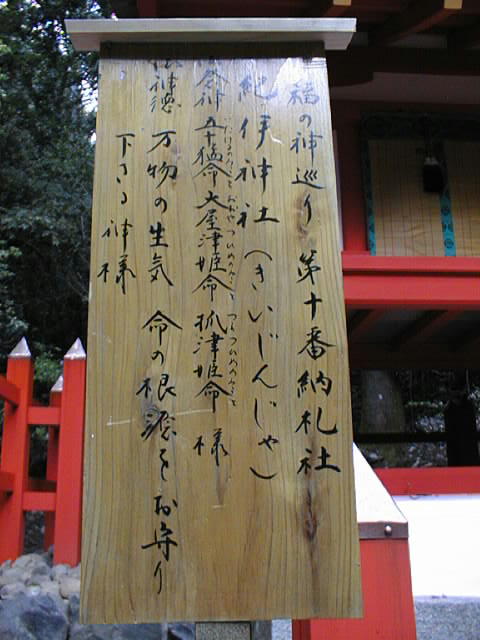 福の神巡り 第十番納札社
紀伊神社（きいじんじゃ）
御祭神 五十猛命 大屋津姫命 抓津姫命 様
御神徳 万物の生気 命の根源をお守り
下さる神様